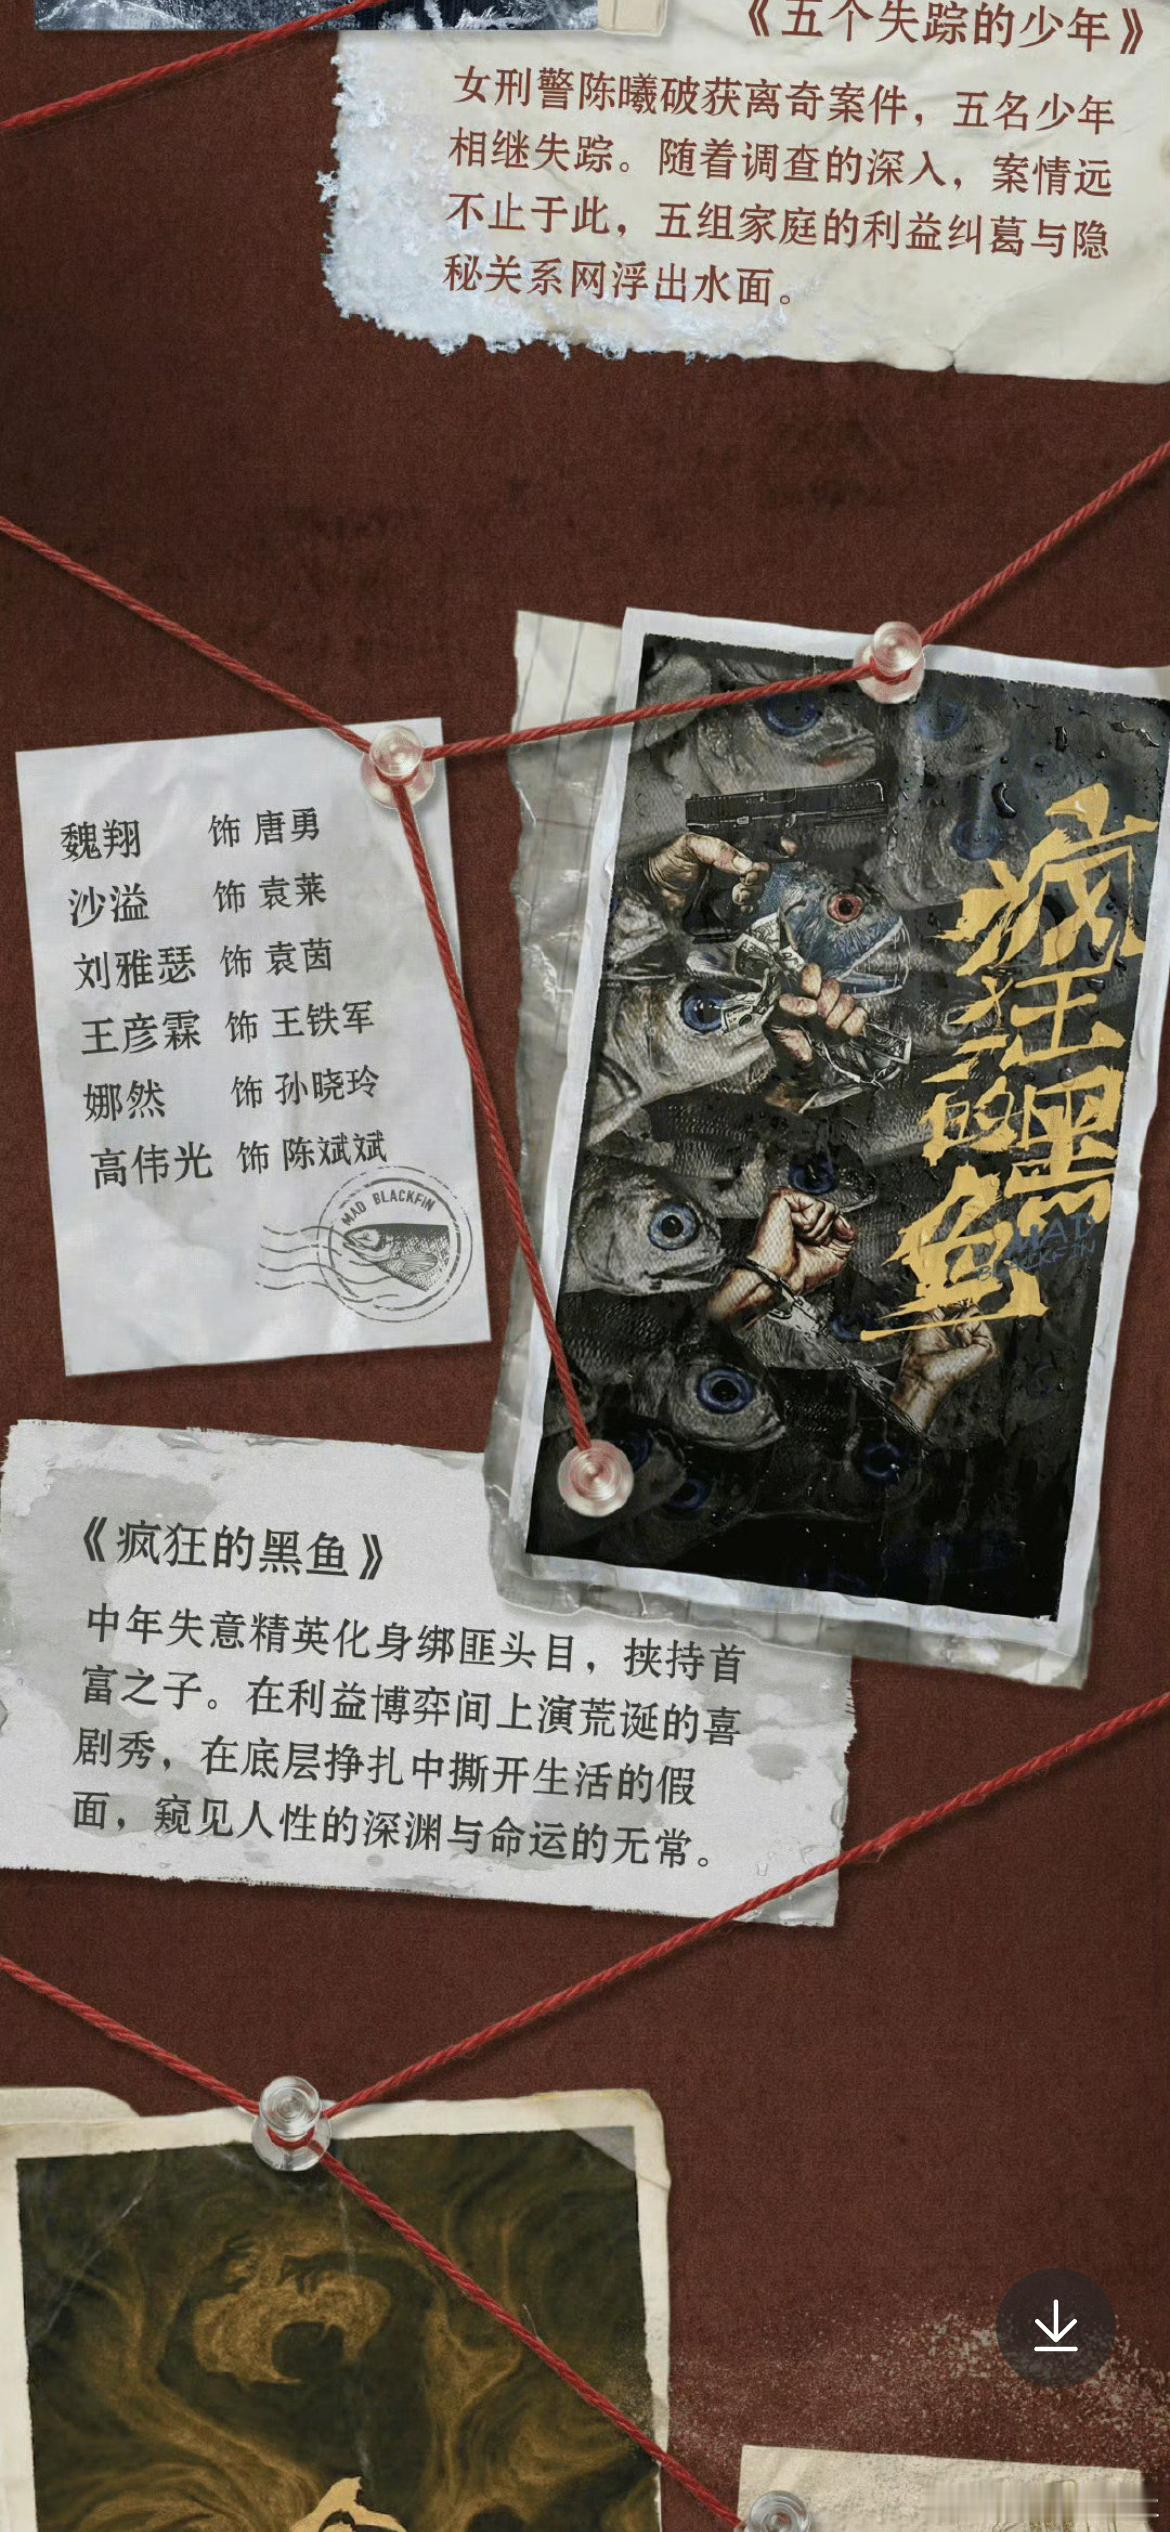 《五个失踪的少年》
女刑警陈曦破获离奇案件，五名少年
相继失踪。随着调查的深入，案情远
不止于此，五组家庭的利益纠葛与隐
秘关系网浮出水面。
魏翔 饰 唐勇
沙溢 饰 袁莱
刘雅瑟 饰 袁茵
王彦霖 饰 王铁军
娜然 饰 孙晓玲
高伟光 饰 陈斌斌
MAD BLACKFIN
疯狂的黑鱼
MAD
BLACKFIN
《疯狂的黑鱼》
中年失意精英化身绑匪头目，挟持首
富之子。在利益博弈间上演荒诞的喜
剧秀，在底层挣扎中撕开生活的假
面，窥见人性的深渊与命运的无常。